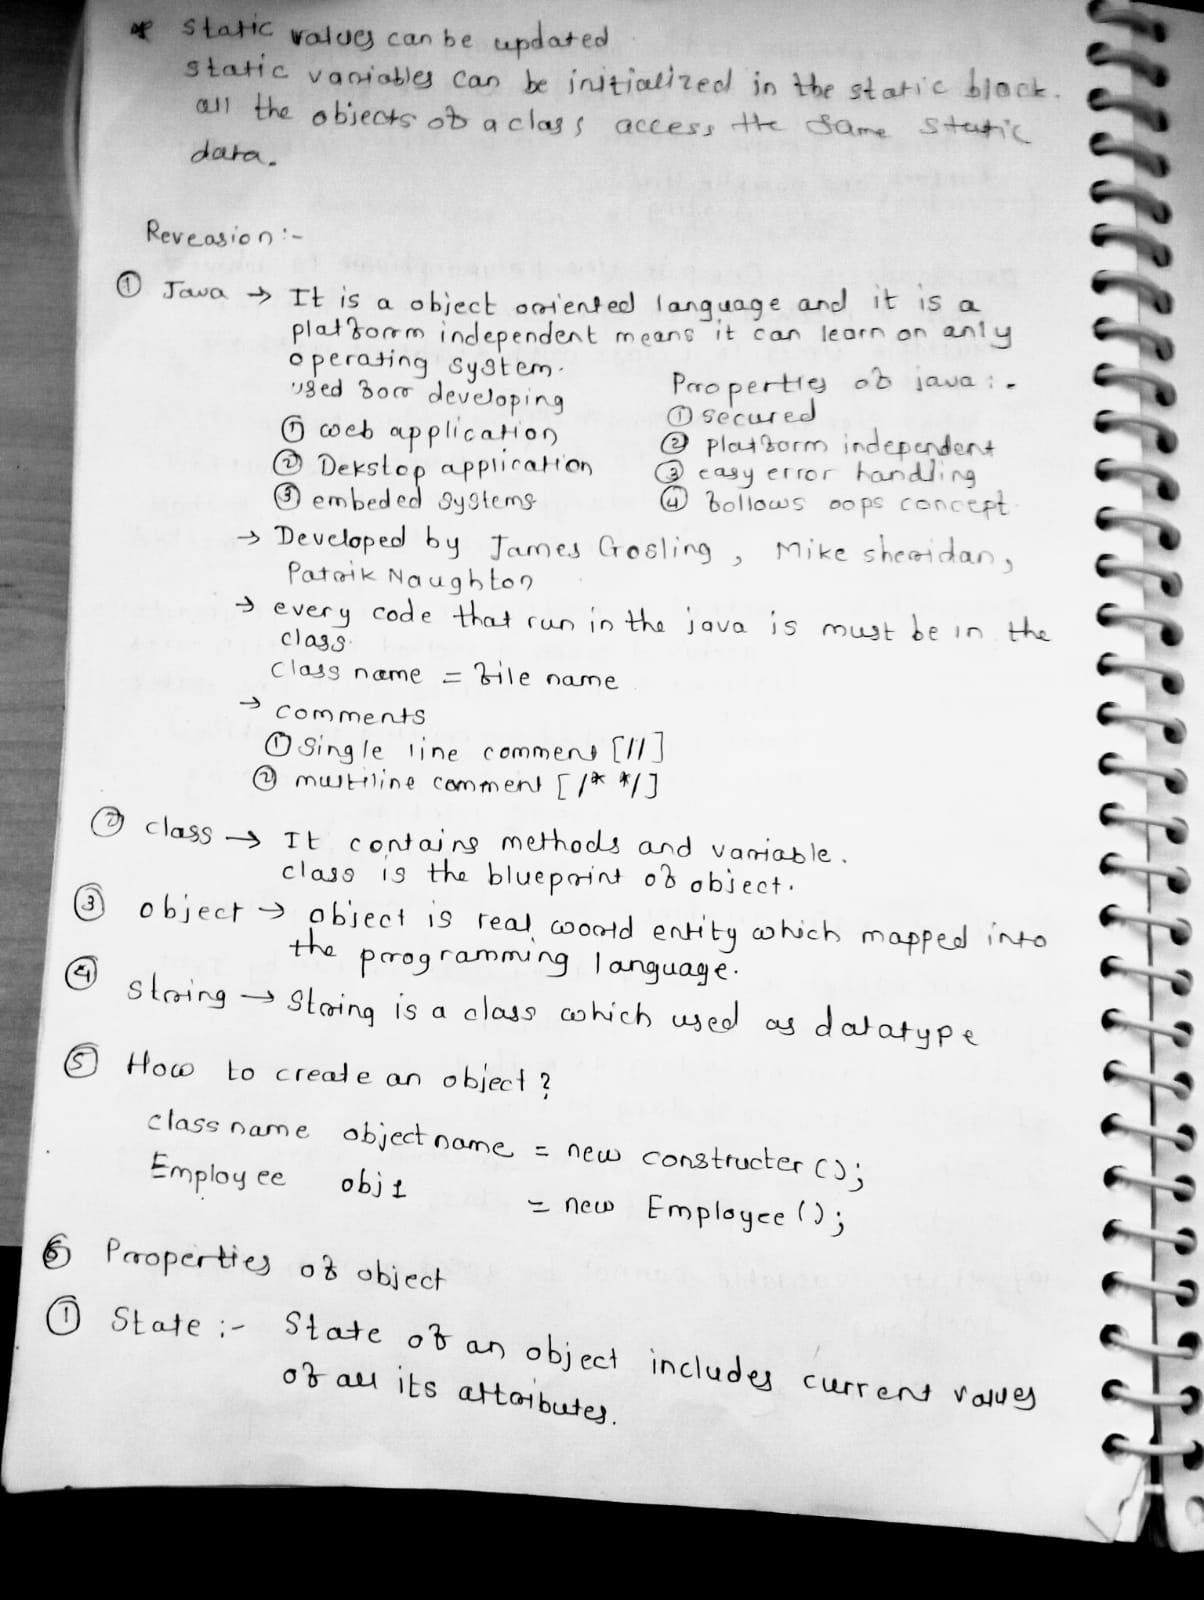 * static values can be updated.
static variables can be initialized in the static block.
all the objects of a class access the same static
data.
Reveasion :-
① Java → It is a object oriented language and it is a
platform independent means it can learn on anly
operating system.
used for developing
① web application
② Dekstop application
③ embeded systems
Properties of java :-
① secured
② platform independent
③ easy error handling
④ follows oops concept.
→ Developed by James Gosling, Mike sheridan,
Patrik Naughton
→ every code that run in the java is must be in the
class.
class name = file name
→ comments
① Single line comment [//]
② multiline comment [/* */]
② class → It contains methods and variable.
class is the blueprint of object.
③ object → object is real world entity which mapped into
the programming language.
④ string → String is a class which used as datatype
⑤ How to create an object?
class name object name = new constructer();
Employee obj1 = new Employee();
⑥ Properties of object
① State :- State of an object includes current values
of all its attributes.